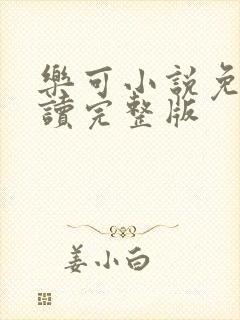 樂可小說免
讀完整版
姜小白